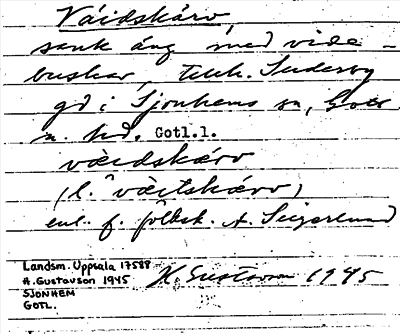 Váidskárv
sank äng med vide-
buskar, tillh. Suderby
gd i Sjonhems sn, Gotl.
n. hd. Gotl.l.
väidskárv
(l. väitskárv)
enl. f. folksk. A. Segerlund
Landsm. Uppsala 17588
H. Gustavson 1945
SJONHEM
GOTL.
H. Gustavson 1945